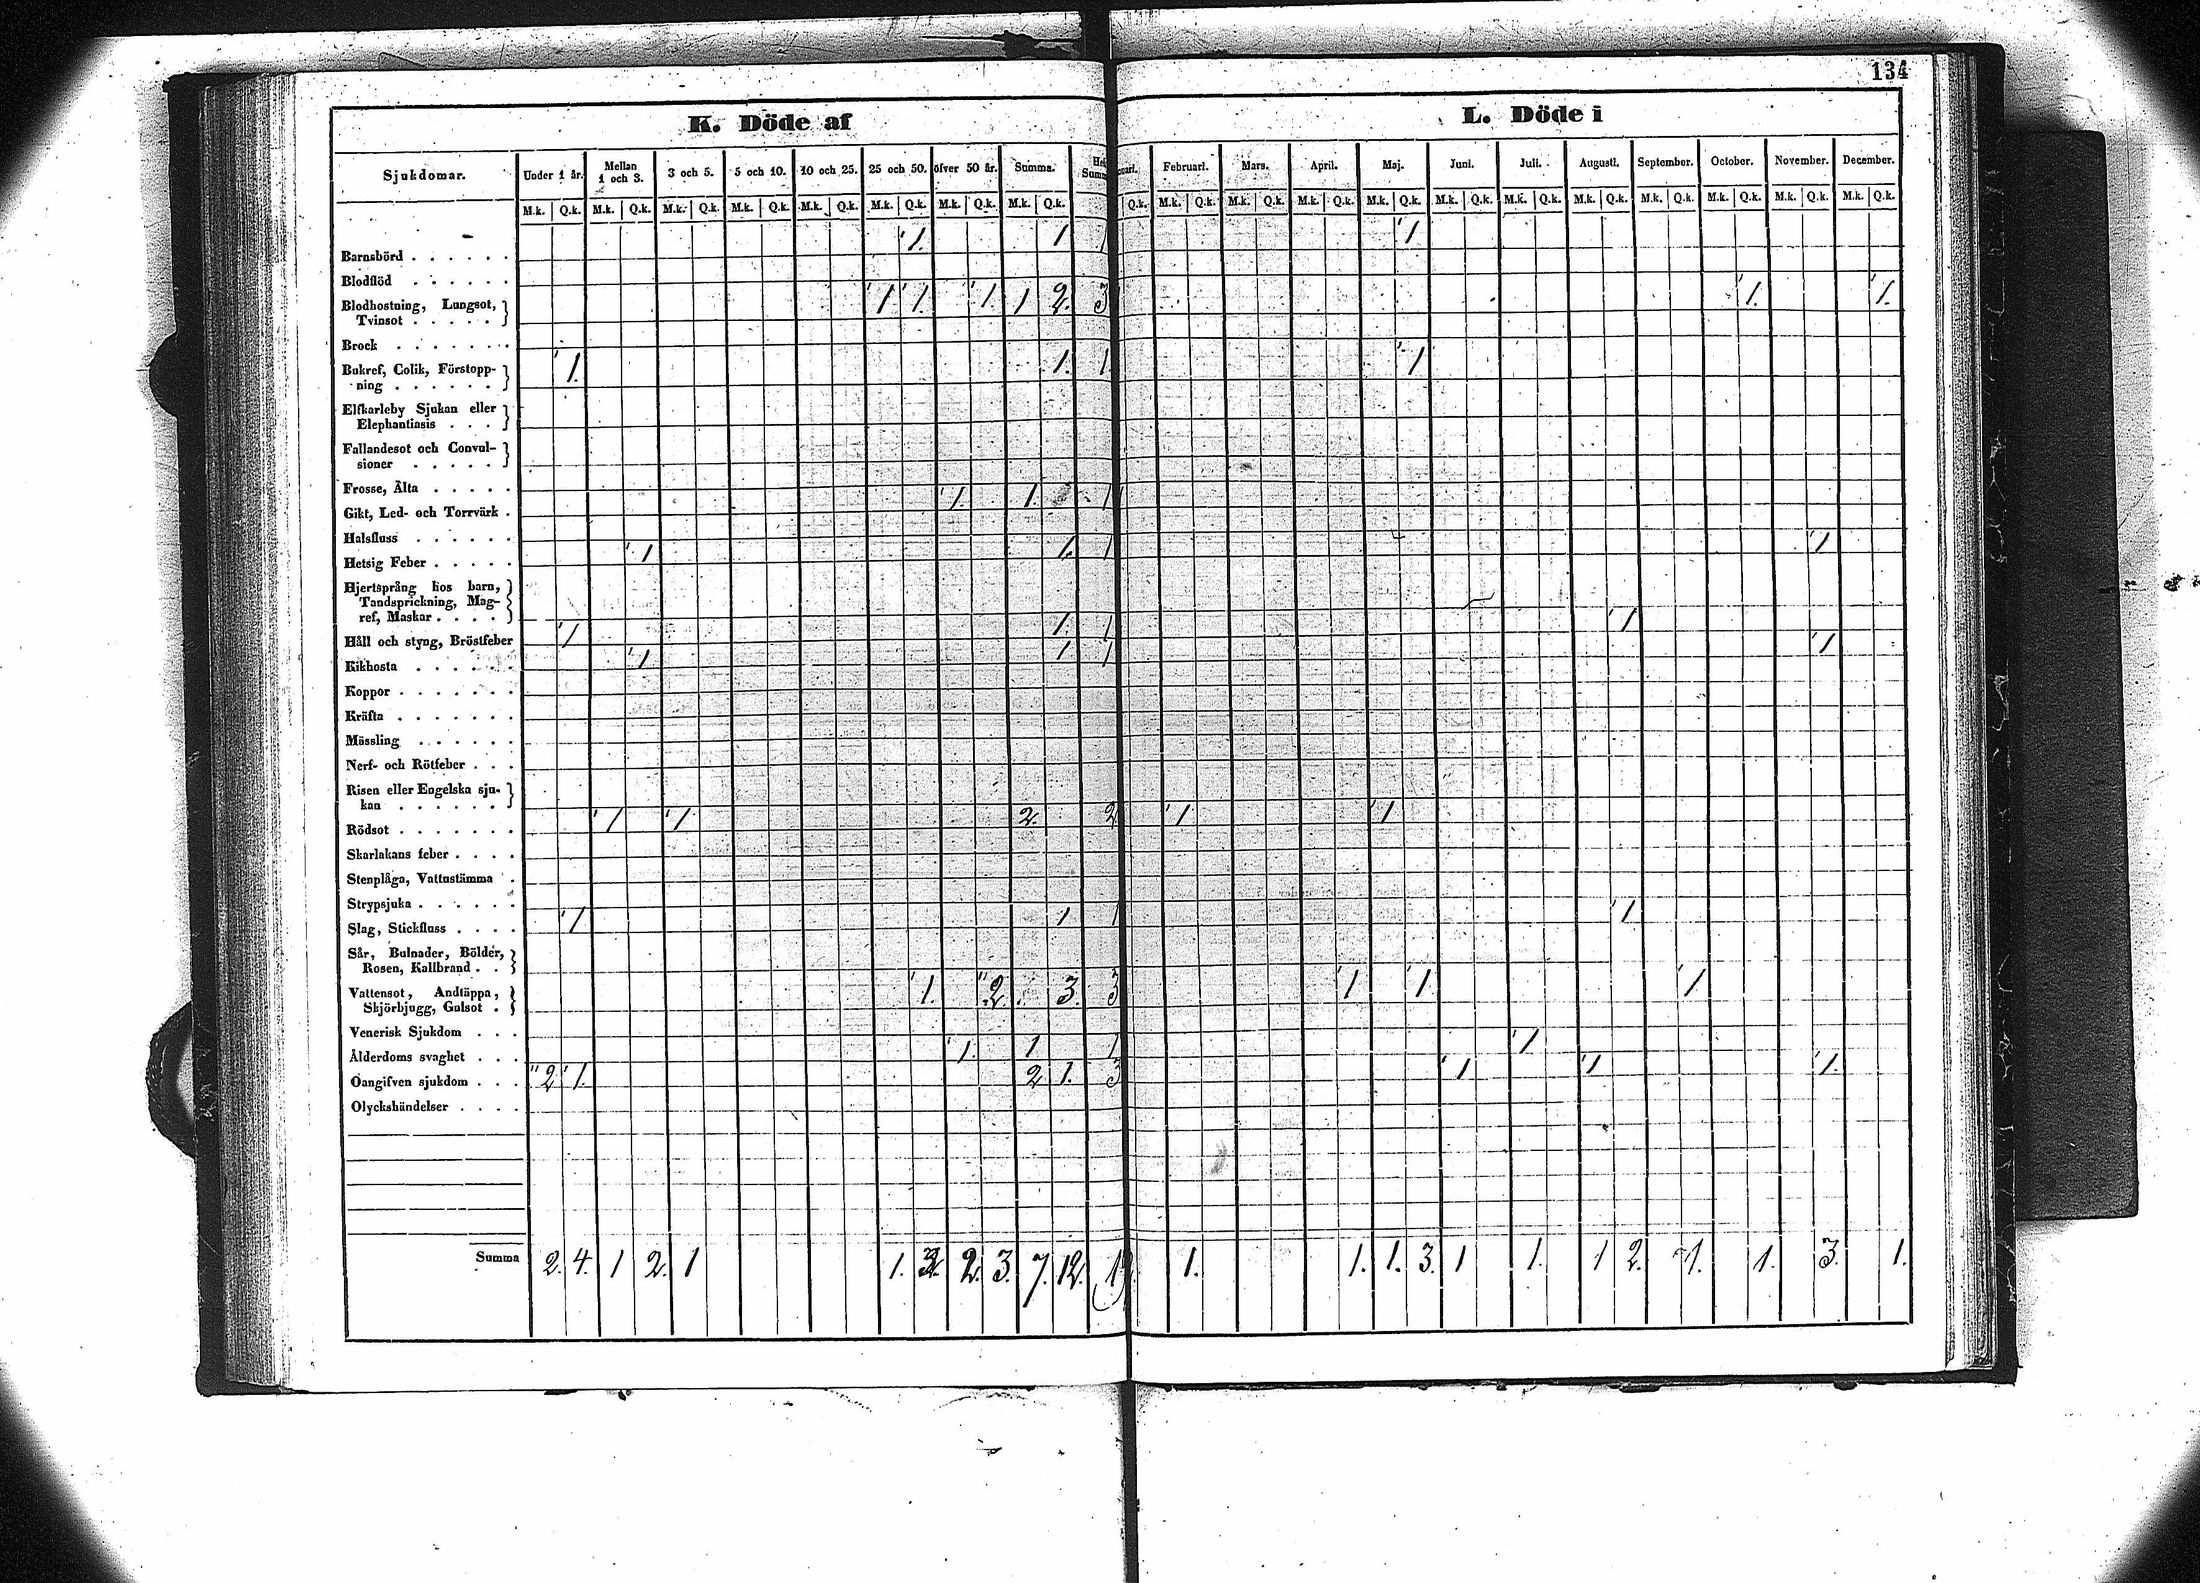 134
K. Döde af
L. Döde i
Sjukdomar. Under 1 år. Mellan 1 och 3. 3 och 5. 5 och 10. 10 och 25. 25 och 50. öfver 50 år. Summa. Februari. Mars. April. Maj. Juni. Juli. Augusti. September. October. November. December.
M.k. Q.k. M.k. Q.k. M.k. Q.k. M.k. Q.k. M.k. Q.k. M.k. Q.k. M.k. Q.k. M.k. Q.k. Q.k. M.k. Q.k. M.k. Q.k. M.k. Q.k. M.k. Q.k. M.k. Q.k. M.k. Q.k. M.k. Q.k. M.k. Q.k. M.k. Q.k. M.k. Q.k. M.k. Q.k.
Barnsbörd . . . . . . 1. 1 1 1
Blodflöd . . . . . .
Blodhostning, Lungsot,
Tvinsot . . . . . 1 1. 1. 1 2. 3 1. 1.
Brock . . . . . . .
Bukref, Colik, Förstopp-
ning . . . . . . 1. 1. 1. 1
Elfkarleby Sjukan eller
Elephantiasis . . .
Fallandesot och Convul-
sioner . . . . .
Frosse, Älta . . . . .
Gikt, Led- och Torrvärk . 1. 1. 1
Halsfluss . . . . . .
Hetsig Feber . . . . . 1 1. 1 1
Hjertsprång hos barn,
Tandsprickning, Mag-
ref, Maskar . . . .
Håll och styng, Bröstfeber 1 1. 1 1
Kikhosta . . . . . . 1 1 1 1
Koppor . . . . . . .
Kräfta . . . . . . .
Mässling . . . . . .
Nerf- och Rötfeber . . .
Risen eller Engelska sju-
kan . . . . . .
Rödsot . . . . . . . 1 1 2. 2 1 1
Skarlakans feber . . . .
Stenplåga, Vattustämma .
Strypsjuka . . . . . .
Slag, Stickfluss . . . . 1 1 1 1
Sår, Bulnader, Bölder,
Rosen, Kallbrand . .
Vattensot, Andtäppa,
Skjörbjugg, Gulsot . 1. 2. 3. 3 1 1 1
Venerisk Sjukdom . . .
Ålderdoms svaghet . . . 1. 1 1 1
Oangifven sjukdom . . . 2 1. 2 1. 3 1 1 1.
Olyckshändelser . . . .
Summa 2. 4. 1 2. 1 1. 2. 3. 7. 12. 19 1. 1. 1. 3. 1 1. 1 2. 1. 1. 3. 1.